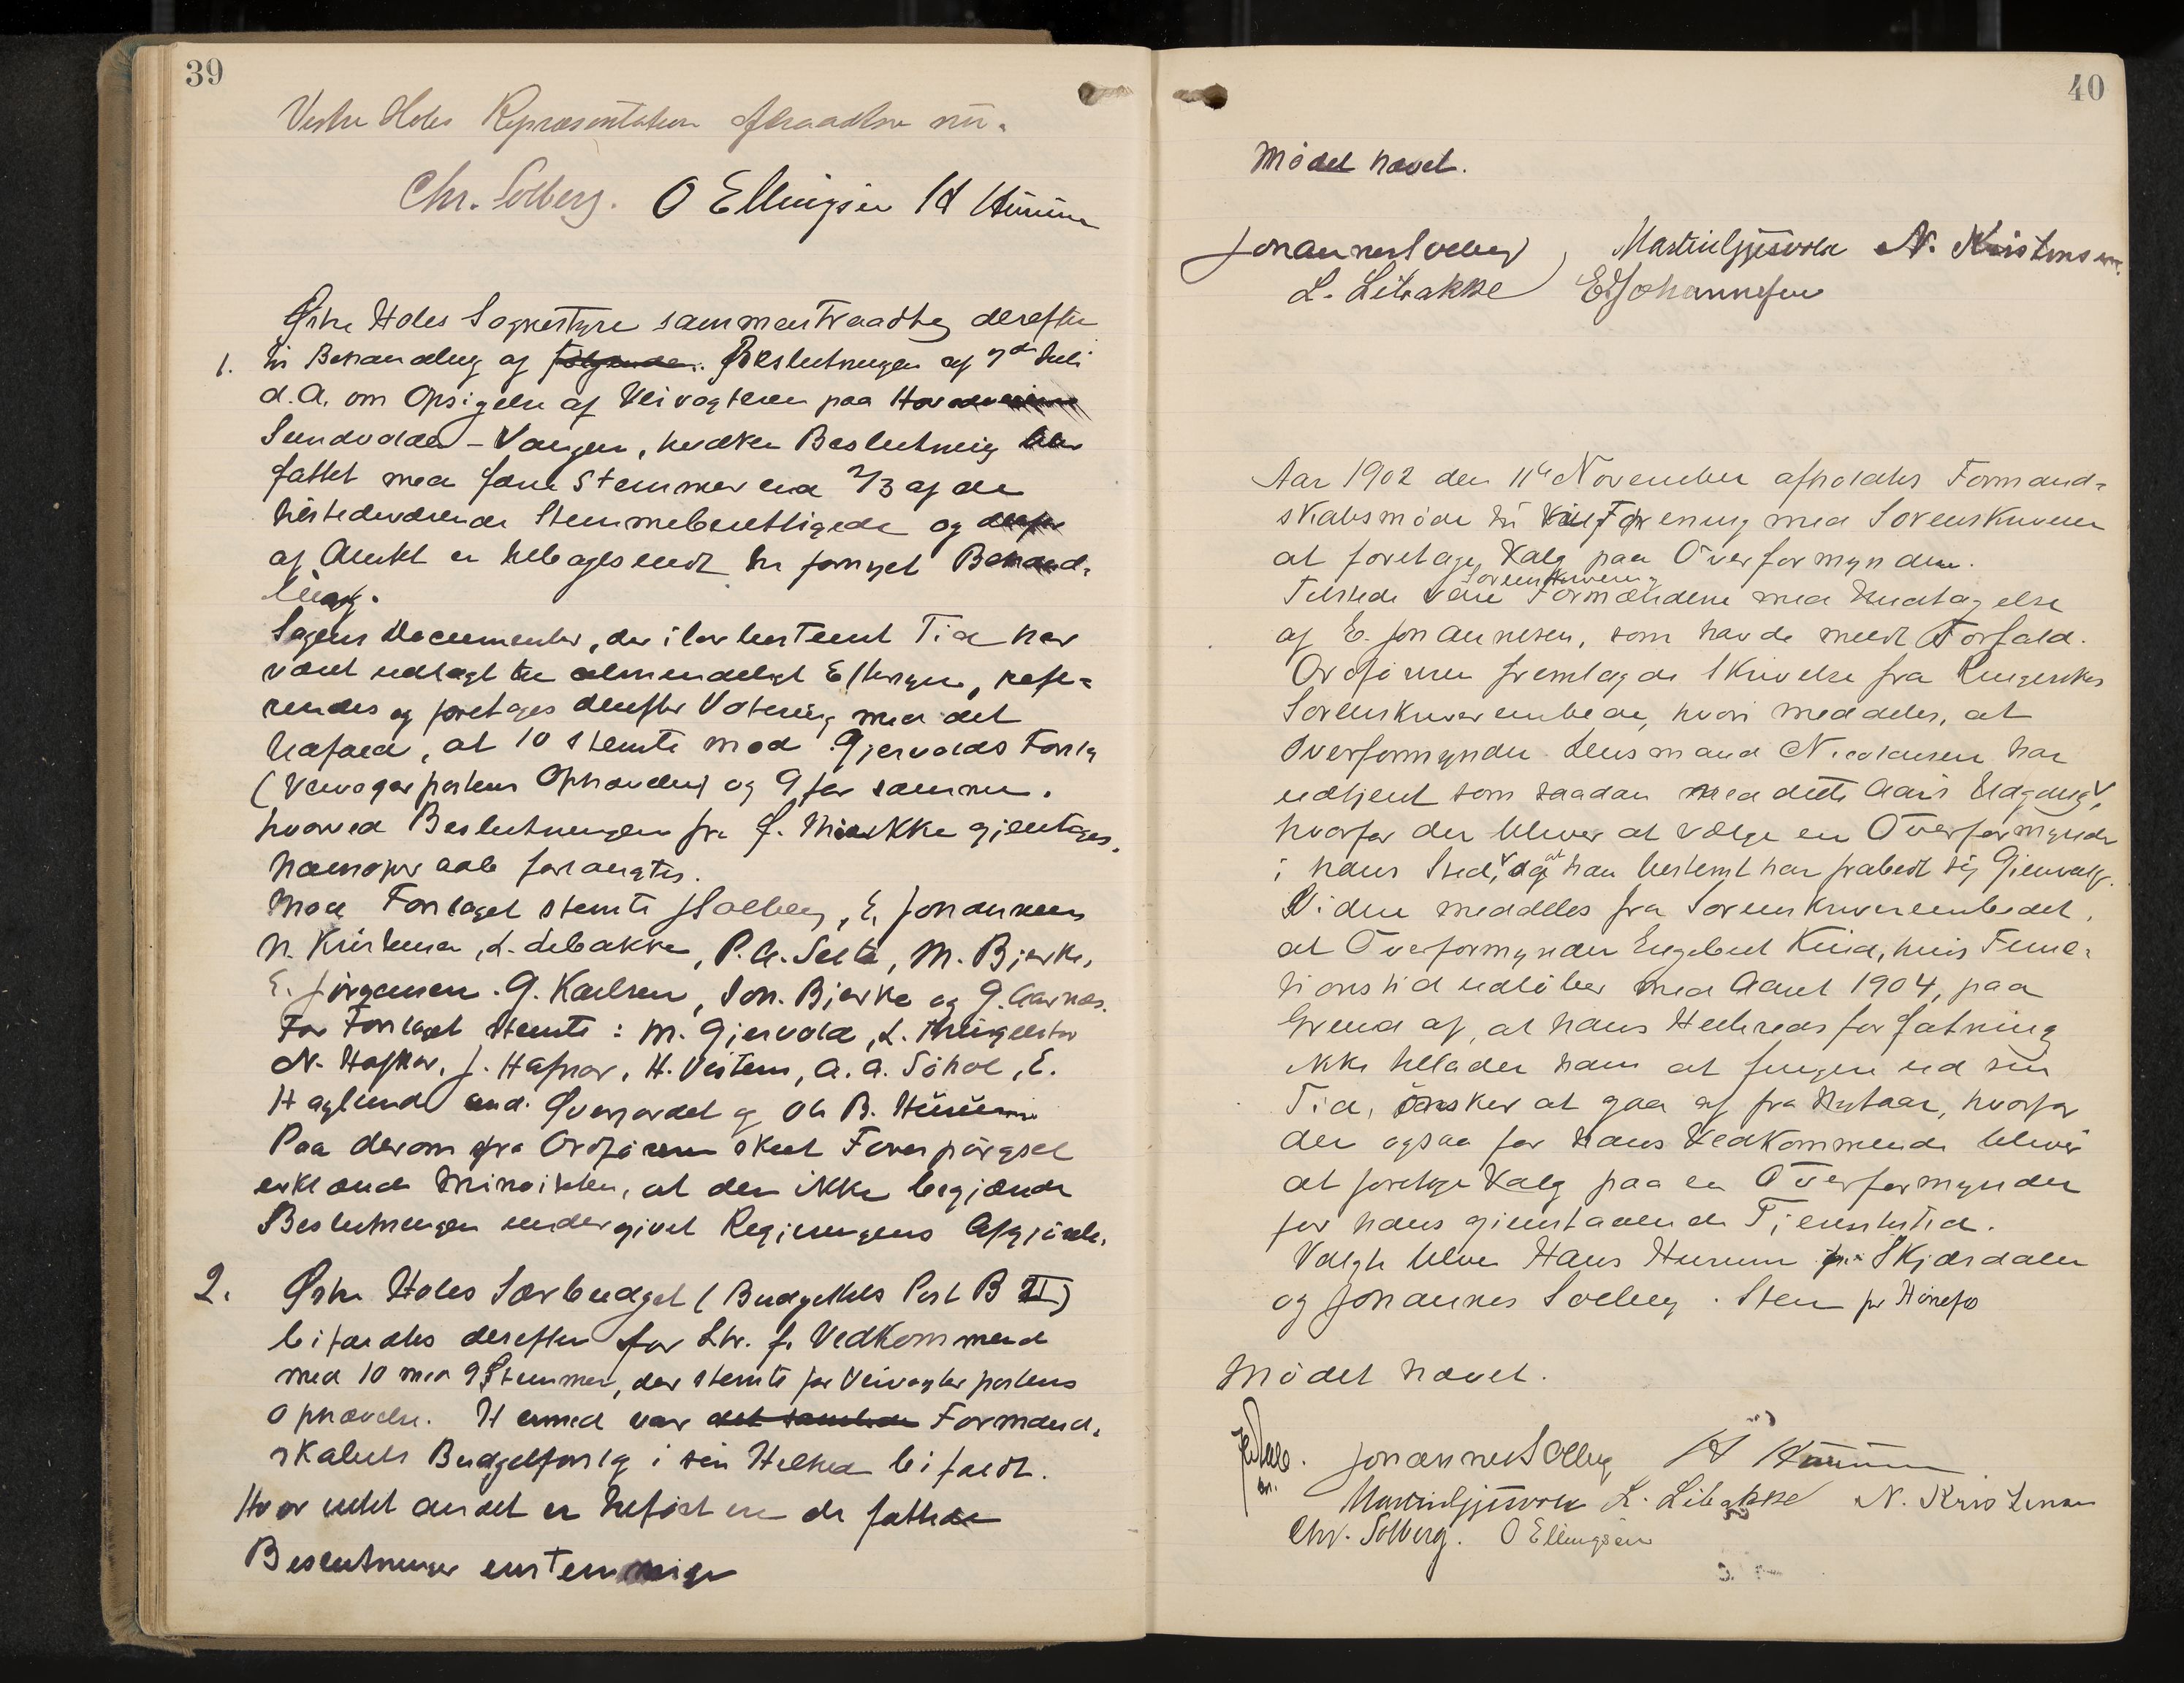 39
Vestre Holes Repræsentation fratraadte nu.
Chr. Solberg. O Ellingsen H Hurum
Østre Holes Sognestyre sammentraadte derefter
1. til Behandling af følgende: Beslutningen af 7de Juli
d.A. om Opsigelse af Veivogteren paa Hovedveiene
Sundvolden - Vangen, hvilken Beslutning blev
fattet med færre Stemmer end 2/3 af de
tilstedeværende Stemmeberettigede og derfor
af Amtet er tilbagesendt til fornyet Behand-
ling.
Sagens Documenter, der i lovbestemt Tid har
været udlagt til almindeligt Eftersyn, refe-
reredes og foretages derefter Votering med det
Udfald, at 10 stemte mod Gjervolds Forslag
(Veivogterpostens Ophævelse) og 9 for samme.
hvorved Beslutningen fra f. Møde ikke gjentages.
Navneopraab forlangtes.
Mod Forslaget stemte J Solberg, E. Johannesen
N. Kristensen, L. Libakke, P. A. Sette, M. Bjerke,
E. Jörgensen. G. Karlsen, Joh. Bjerke og G. Aarnes.
For Forslaget stemte: M. Gjesvold, L.
N. Hafnor, J. Hafnor, H. Vestern, A. A. Söhol, E.
Haglund, And. Øverjordet og Ole B. Hurum
Paa derom fra Ordföreren skeet Forespörgsel
erklærede Minoriteten, at den ikke begjærede
Beslutningen undergivet Regjeringens Afgjörelse.
2. Østre Holes Særbudget (Budgettets Post B II)
bifaldtes derefter for Litr. f. Vedkommende
med 10 mod 9 Stemmer, der stemte for Veivogterpostens
Ophævelse. Hermed var det samlede Formand-
skabets Budgetforslag i sin Helhed bifaldt.
Hvor intet andet er tilført ere de fattede
Beslutninger enstemmige
40
Mödet hævet.
Johannes Solberg, Martin Gjesvold N. Kristensen.
L. Libakke E. Johannesen
Aar 1902 den 11te November afholdtes Formand-
skabsmöde til i Forening med Sorenskriveren
at foretage Valg paa Overformyndere.
Sorenskriveren,
Tilstede vare Formændene med Undtagelse
af E. Johannesen, som havde meldt Forfald.
Ordföreren fremlagde Skrivelse fra Ringerikes
Sorenskriverembede, hvori meddeles, at
Overformynder Lensmand Nicolaisen har
udtjent som saadan med dette Aars Udgang,
hvorfor der bliver at vælge en Overformynder
i hans Sted, og at han bestemt har frabedt sig Gjenvalg.
Videre meddeles fra Sorenskriverembedet,
at Overformynder Engebret Rud, hvis Func-
tionstid udlöber med Aaret 1904, paa
Grund af, at hans Helbredsforfatning
ikke tillader ham at fungere ud sin
Tid, önsker at gaa af fra Nytaar, hvorfor
der ogsaa for hans Vedkommende bliver
at foretage Valg paa en Overformynder
for hans gjenstaaende Tjenestetid.
Valgte blev Hans Hurum pr. Skjærdalen
og Johannes Solberg. Sten pr Hönefos
Mödet hævet.
Johannes Solberg H Hurum
Martin Gjesvold L. Libakke N. Kristensen
Chr. Solberg. O Ellingsen